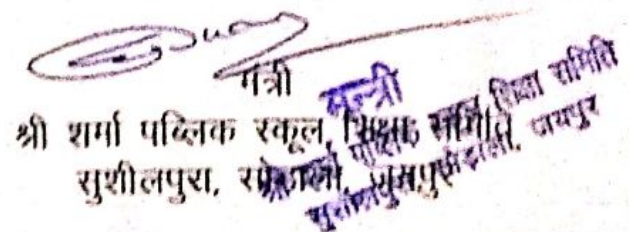 मंत्री
श्री शर्मा पब्लिक स्कूल, शिक्षा समिति
सुशीलपुरा, सोडाला, जयपुर
मन्त्री
शिक्षा समिति
सोडाला, जयपुर